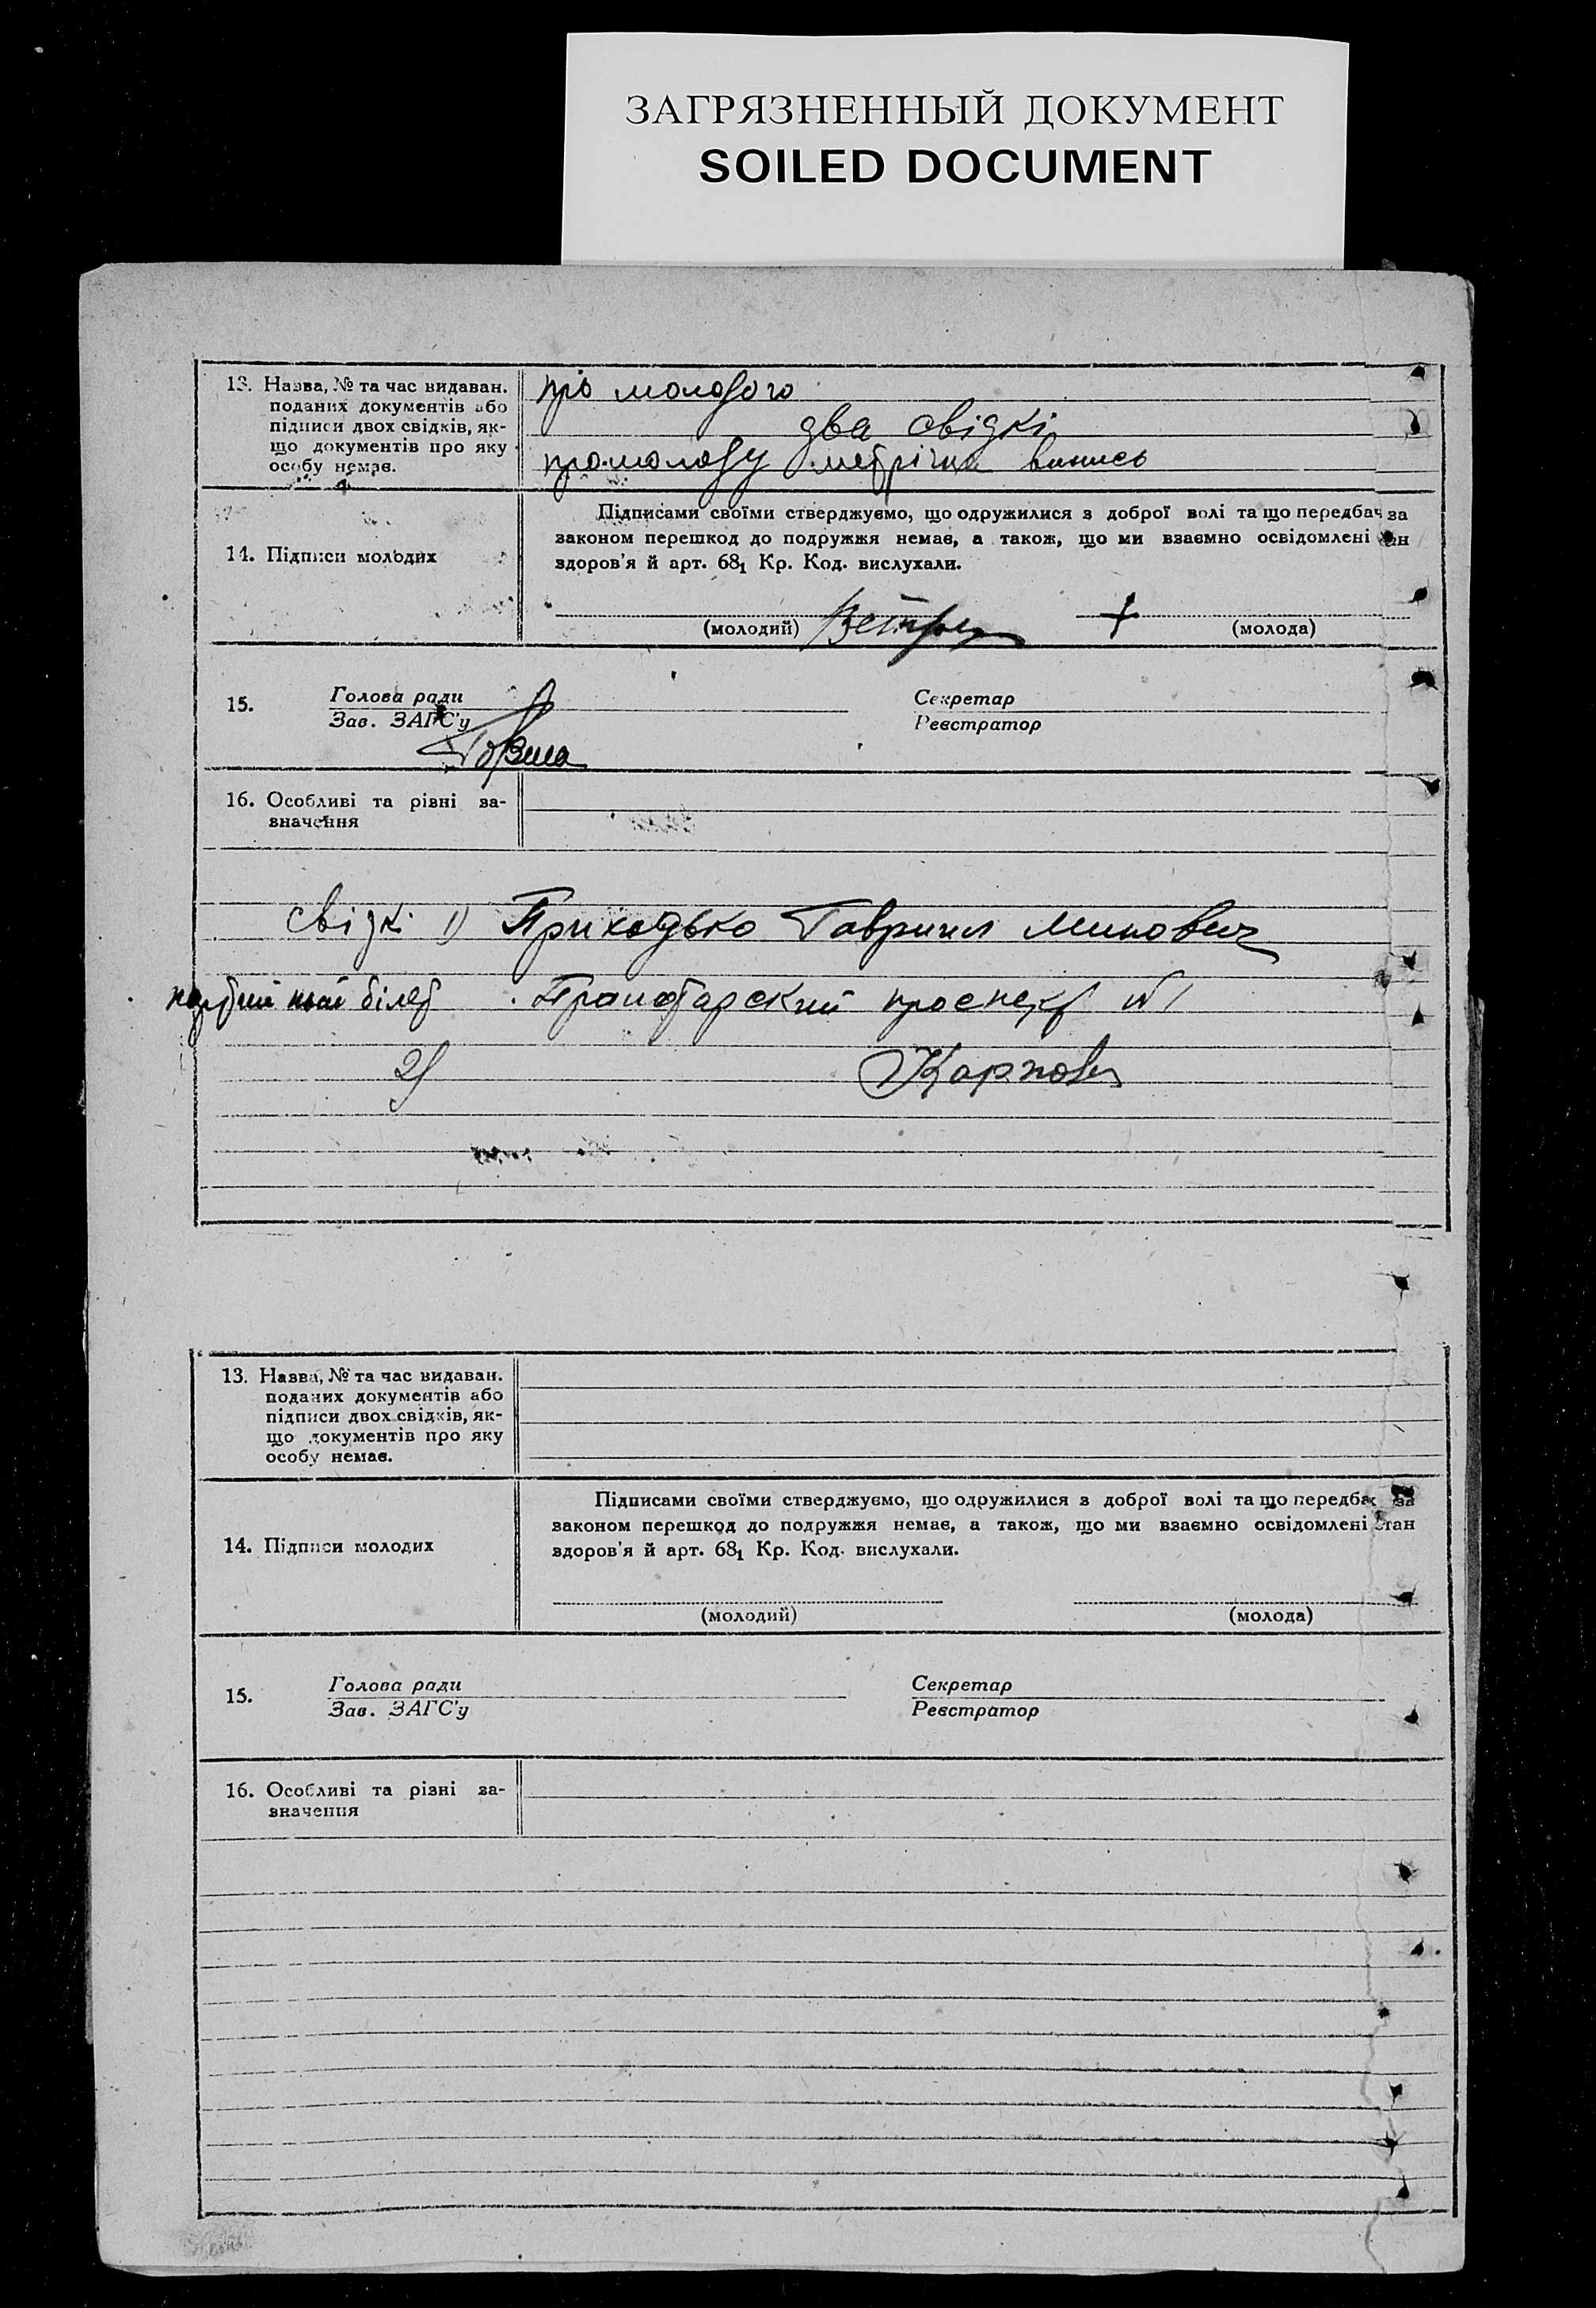 ЗАГРЯЗНЕННЫЙ ДОКУМЕНТ
SOILED DOCUMENT
13. Назва, № та час видаван.
поданих документів або
підписи двох свідків, як-
що документів про яку
особу немає.
про молодого
два свідкі
про молоду метрічна випись
14. Підписи молодих
Підписами своїми стверджуємо, що одружилися з доброї волі та що передбач за
законом перешкод до подружжя немає, а також, що ми взаємно освідомлені
здоров'я й арт. 68₁ Кр. Код. вислухали.
+
(молодий) (молода)
15. Голова ради Секретар
Зав. ЗАГС'у Реєстратор
16. Особливі та рівні за-
значення
свідкі 1) Приходько Гавриил Минович
партийний білет Пролетарский проспект №1
2)
13. Назва, № та час видаван.
поданих документів або
підписи двох свідків, як-
що документів про яку
особу немає.
14. Підписи молодих
Підписами своїми стверджуємо, що одружилися з доброї волі та що передбач за
законом перешкод до подружжя немає, а також, що ми взаємно освідомлені стан
здоров'я й арт. 68₁ Кр. Код. вислухали.
(молодий) (молода)
15. Голова ради Секретар
Зав. ЗАГС'у Реєстратор
16. Особливі та різні за-
значення